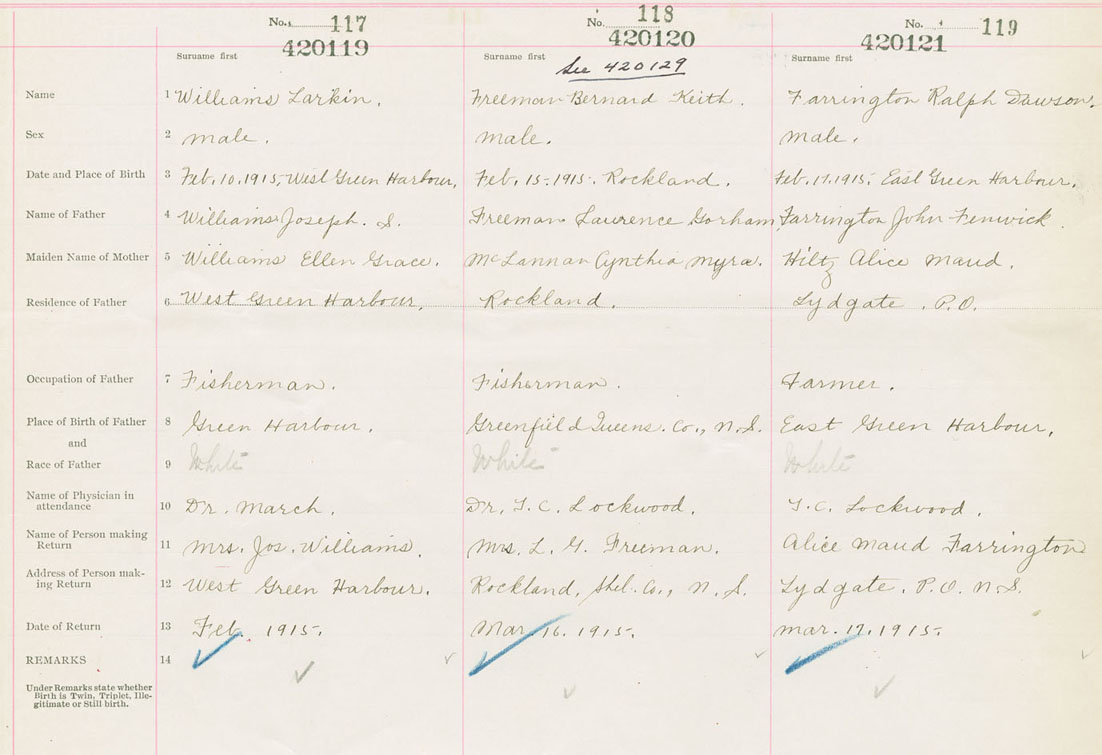 No. 117 No. 118 No. 119
420119 420120 420121
Surname first Surname first Surname first
See 420129
Name 1 Williams Larkin. Freeman Bernard Keith. Farrington Ralph Dawson.
Sex 2 male. male. male.
Date and Place of Birth 3 Feb. 10. 1915, West Green Harbour. Feb. 15. 1915. Rockland. Feb. 17. 1915. East Green Harbour.
Name of Father 4 Williams Joseph. S. Freeman Laurence Gorham Farrington John Fenwick
Maiden Name of Mother 5 Williams Ellen Grace. McLannan Cynthia Myra. Hiltz Alice Maud.
Residence of Father 6 West Green Harbour. Rockland. Lydgate. P.O.
Occupation of Father 7 Fisherman. Fisherman. Farmer.
Place of Birth of Father 8 Green Harbour. Greenfield Queens. Co., N.S. East Green Harbour.
and
Race of Father 9 White White White
Name of Physician in
attendance 10 Dr. March. Dr. T. C. Lockwood. T. C. Lockwood.
Name of Person making
Return 11 Mrs. Jos. Williams. Mrs. L. G. Freeman. Alice Maud Farrington
Address of Person mak-
ing Return 12 West Green Harbour. Rockland, Shel. Co., N. S. Lydgate. P.O. N.S.
Date of Return 13 Feb. 1915. Mar. 16. 1915. Mar. 17. 1915.
REMARKS 14
Under Remarks state whether
Birth is Twin, Triplet, Ille-
gitimate or Still birth.